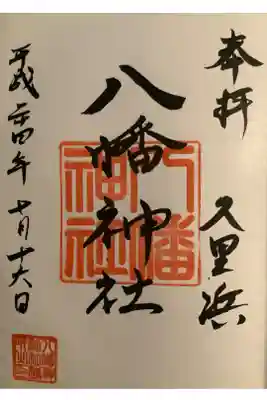 奉拝
久里浜
八幡神社
八幡神社
平成二十四年十月十六日